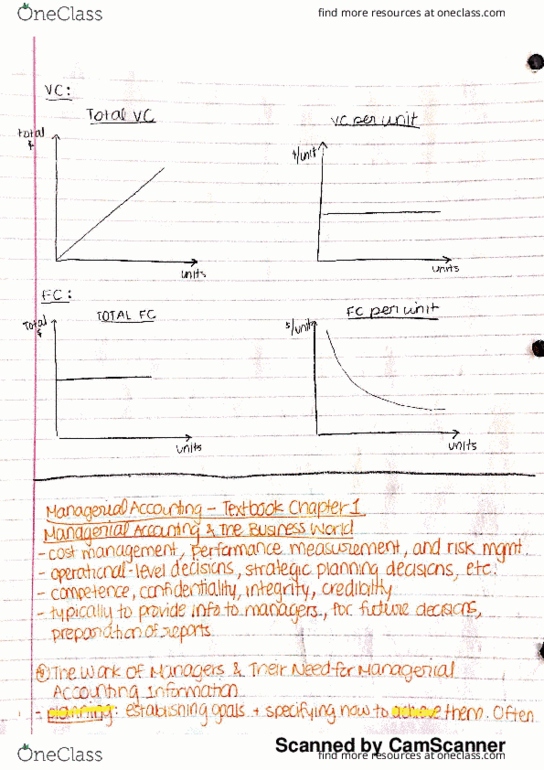 OneClass
find more resources at oneclass.com
VC:
Total VC
VC per unit
total
$
$/unit
units
units
FC:
TOTAL FC
FC per unit
Total
$
$/unit
units
units
Managerial Accounting - Textbook Chapter 1
Managerial Accounting & the Business World
- cost management, performance measurement, and risk mgmt.
- operational-level decisions, strategic planning decisions, etc.
- competence, confidentiality, integrity, credibility
- typically to provide info to managers, for future decisions,
preparation of reports.
The Work of Managers & Their Need for Managerial
Accounting Information
- planning: establishing goals + specifying how to achieve them. Often
OneClass
Scanned by CamScanner
find more resources at oneclass.com